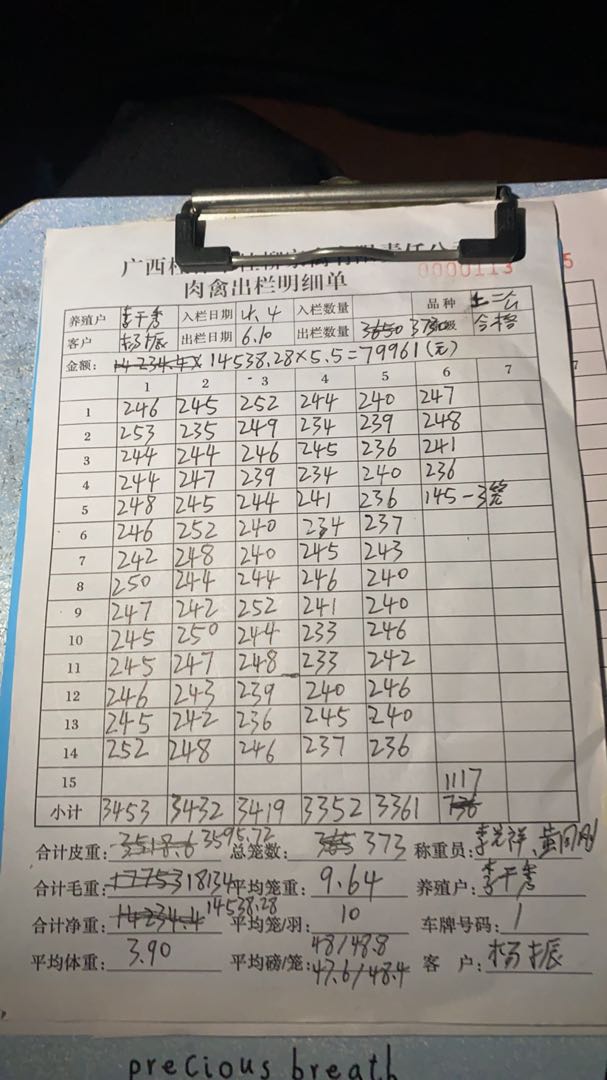 广西 责任公
0000113 5
肉禽出栏明细单
养殖户 李干秀 入栏日期 4.4 入栏数量 品种 土二公
客户 杨振 出栏日期 6.10 出栏数量 3650 3730 级 合格
金额: 14234.4× 14538.28×5.5=79961(元)
1 2 3 4 5 6 7
1 246 245 252 244 240 247
2 253 235 249 234 239 248
3 244 244 246 245 236 241
4 244 247 239 234 240 236
5 248 245 244 241 236 145-3笼
6 246 252 240 234 237
7 242 248 240 245 243
8 250 244 244 246 240
9 247 242 252 241 240
10 245 250 244 233 246
11 245 247 248 233 242
12 246 243 239 240 246
13 245 242 236 245 240
14 252 248 246 237 236
15 1117
小计 3453 3432 3419 3352 3361 736
合计皮重: 3518.6 3595.72 总笼数: 365 373 称重员:
合计毛重: 17753 18134 平均笼重: 9.64 养殖户: 李干秀
合计净重: 14234.4 14538.28 平均笼/羽: 10 车牌号码: 1
平均体重: 3.90 平均磅/笼: 48/48.8 47.6/48.4 客 户: 杨振
precious breath